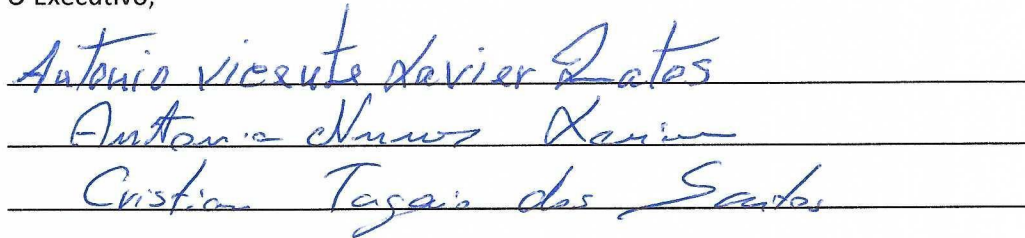 O Executivo,
Antonio Vicente Xavier Ratos
Antonio Nunes Xavier
Cristian Tagaio dos Santos